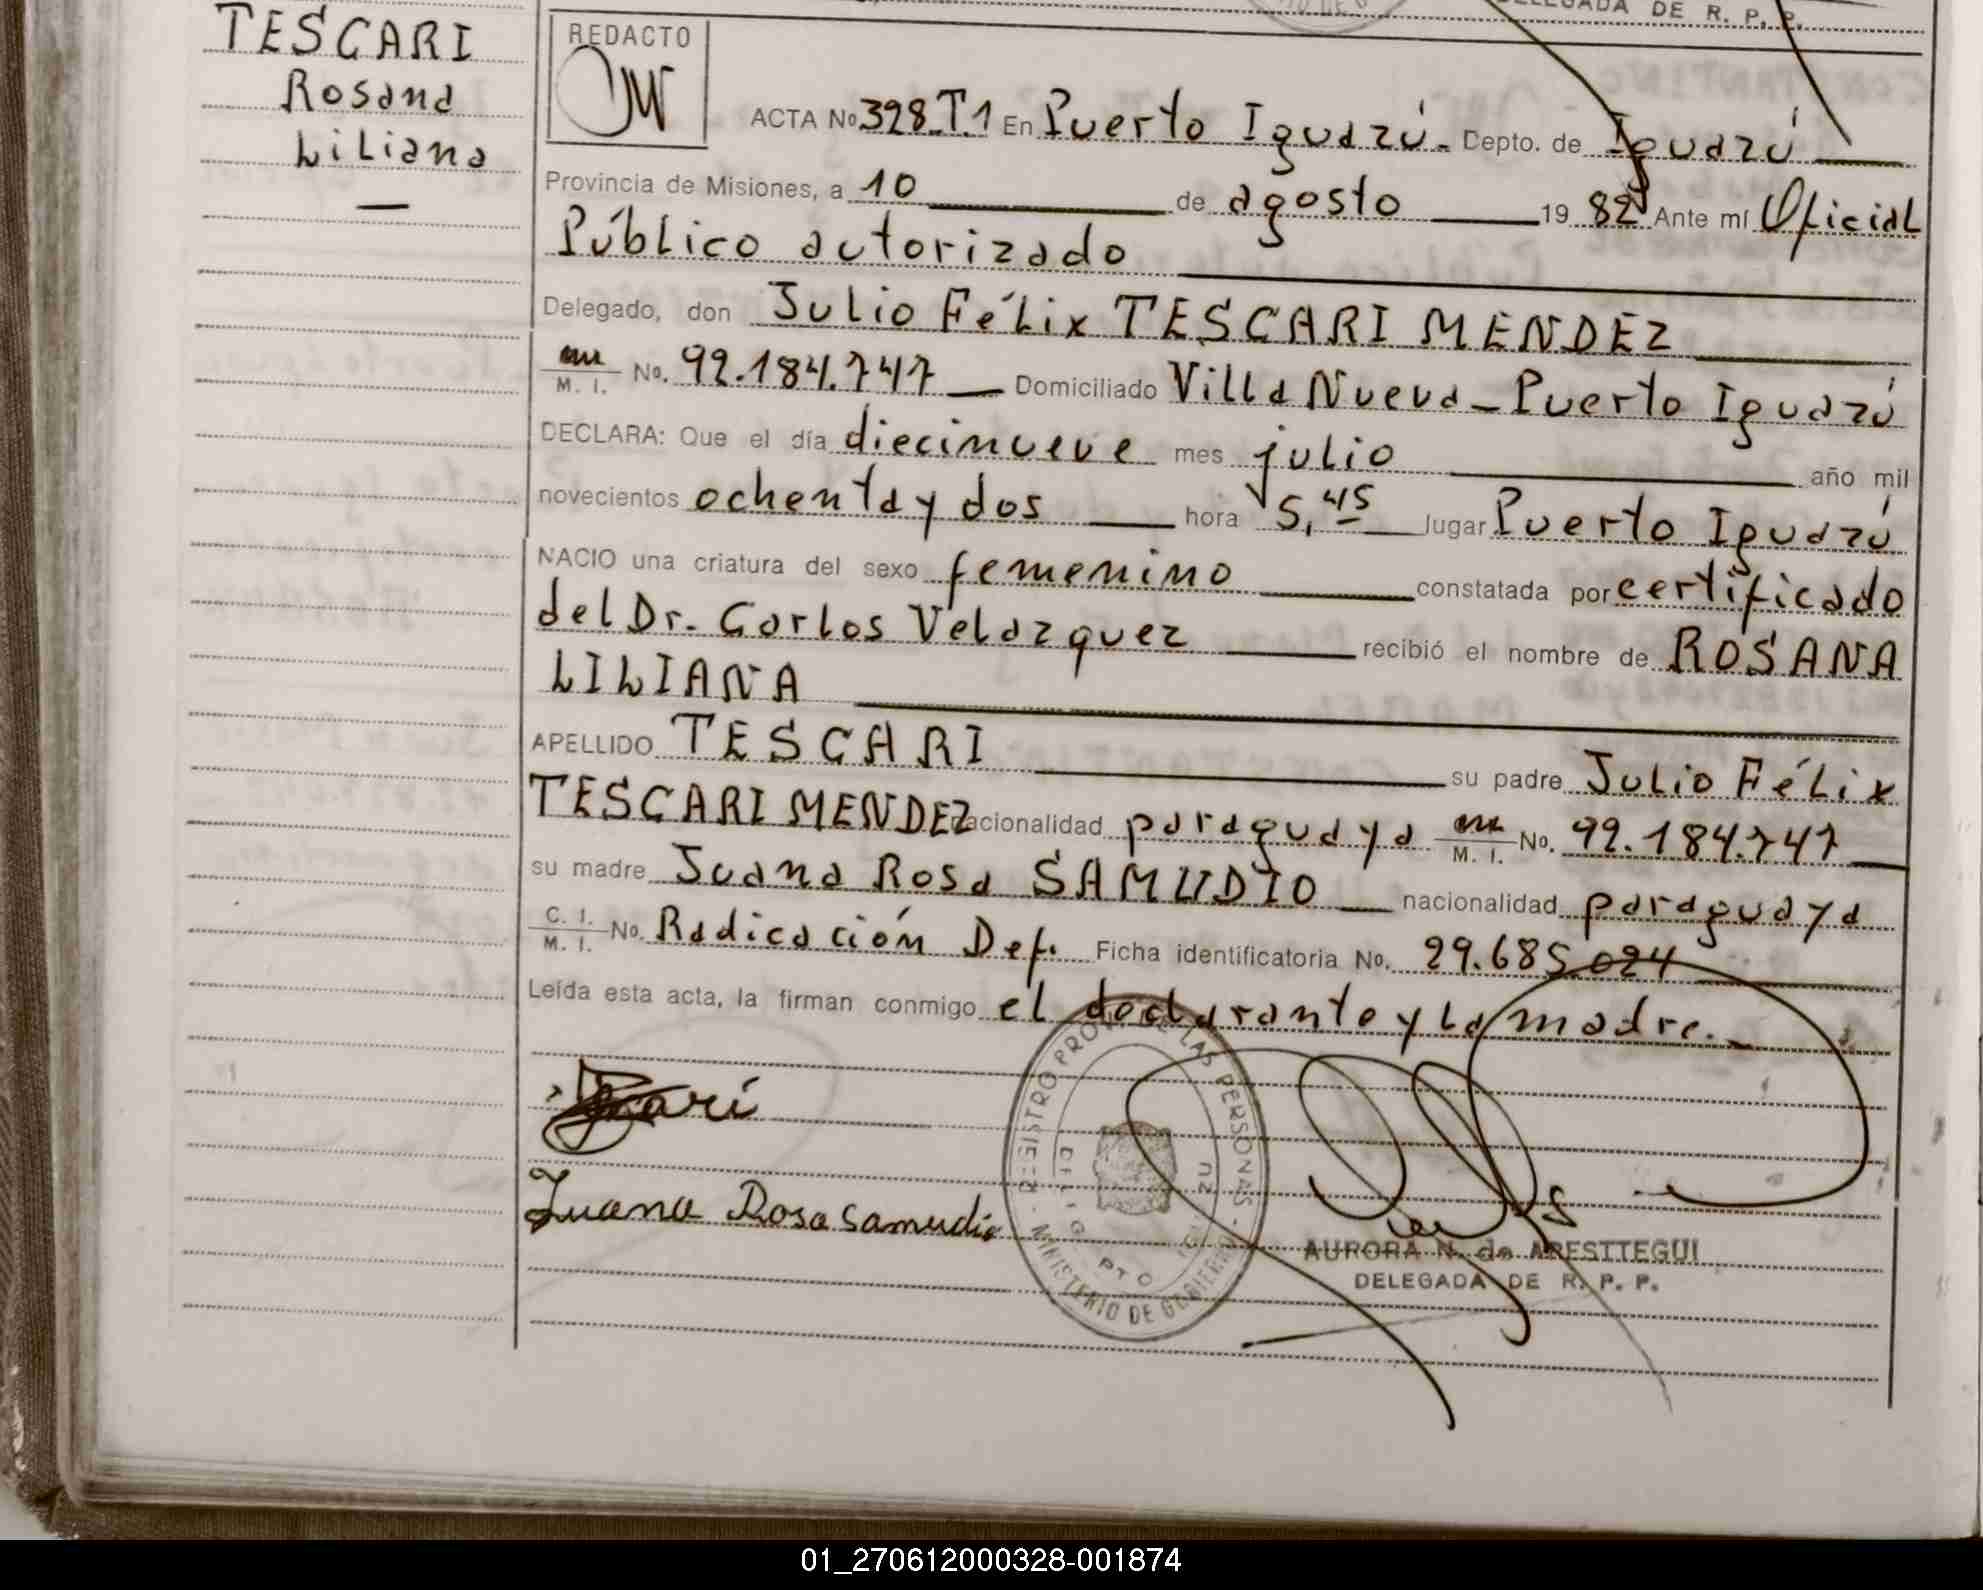 DELEGADA DE R. P. P.
TESCARI
Rosana
Liliana
REDACTO
ACTA No 398-T.1 En Puerto Iguazú - Depto. de Iguazú
Provincia de Misiones, a 10 de agosto 19 82 Ante mí Oficial
Público autorizado
Delegado, don Julio Félix TESCARI MENDEZ
M. I. No. 92.184.747 Domiciliado Villa Nueva - Puerto Iguazú
DECLARA: Que el día diecinueve mes julio año mil
novecientos ochenta y dos hora 5,45 lugar Puerto Iguazú
NACIO una criatura del sexo femenino constatada por certificado
del Dr. Carlos Velazquez recibió el nombre de ROSANA
LILIANA
APELLIDO TESCARI su padre Julio Félix
TESCARI MENDEZ nacionalidad paraguaya M. I. No. 92.184.747
su madre Juana Rosa SAMUDIO nacionalidad paraguaya
C. I. M. I. No. Radicación Def. Ficha identificatoria No. 29.685.024
Leída esta acta, la firman conmigo el declarante y la madre.
Juana Rosa Samudio
REGISTRO PROV. DE LAS PERSONAS - MINISTERIO DE GOBIERNO
AURORA N. de ARESTTEGUI
DELEGADA DE R. P. P.
01_270612000328-001874